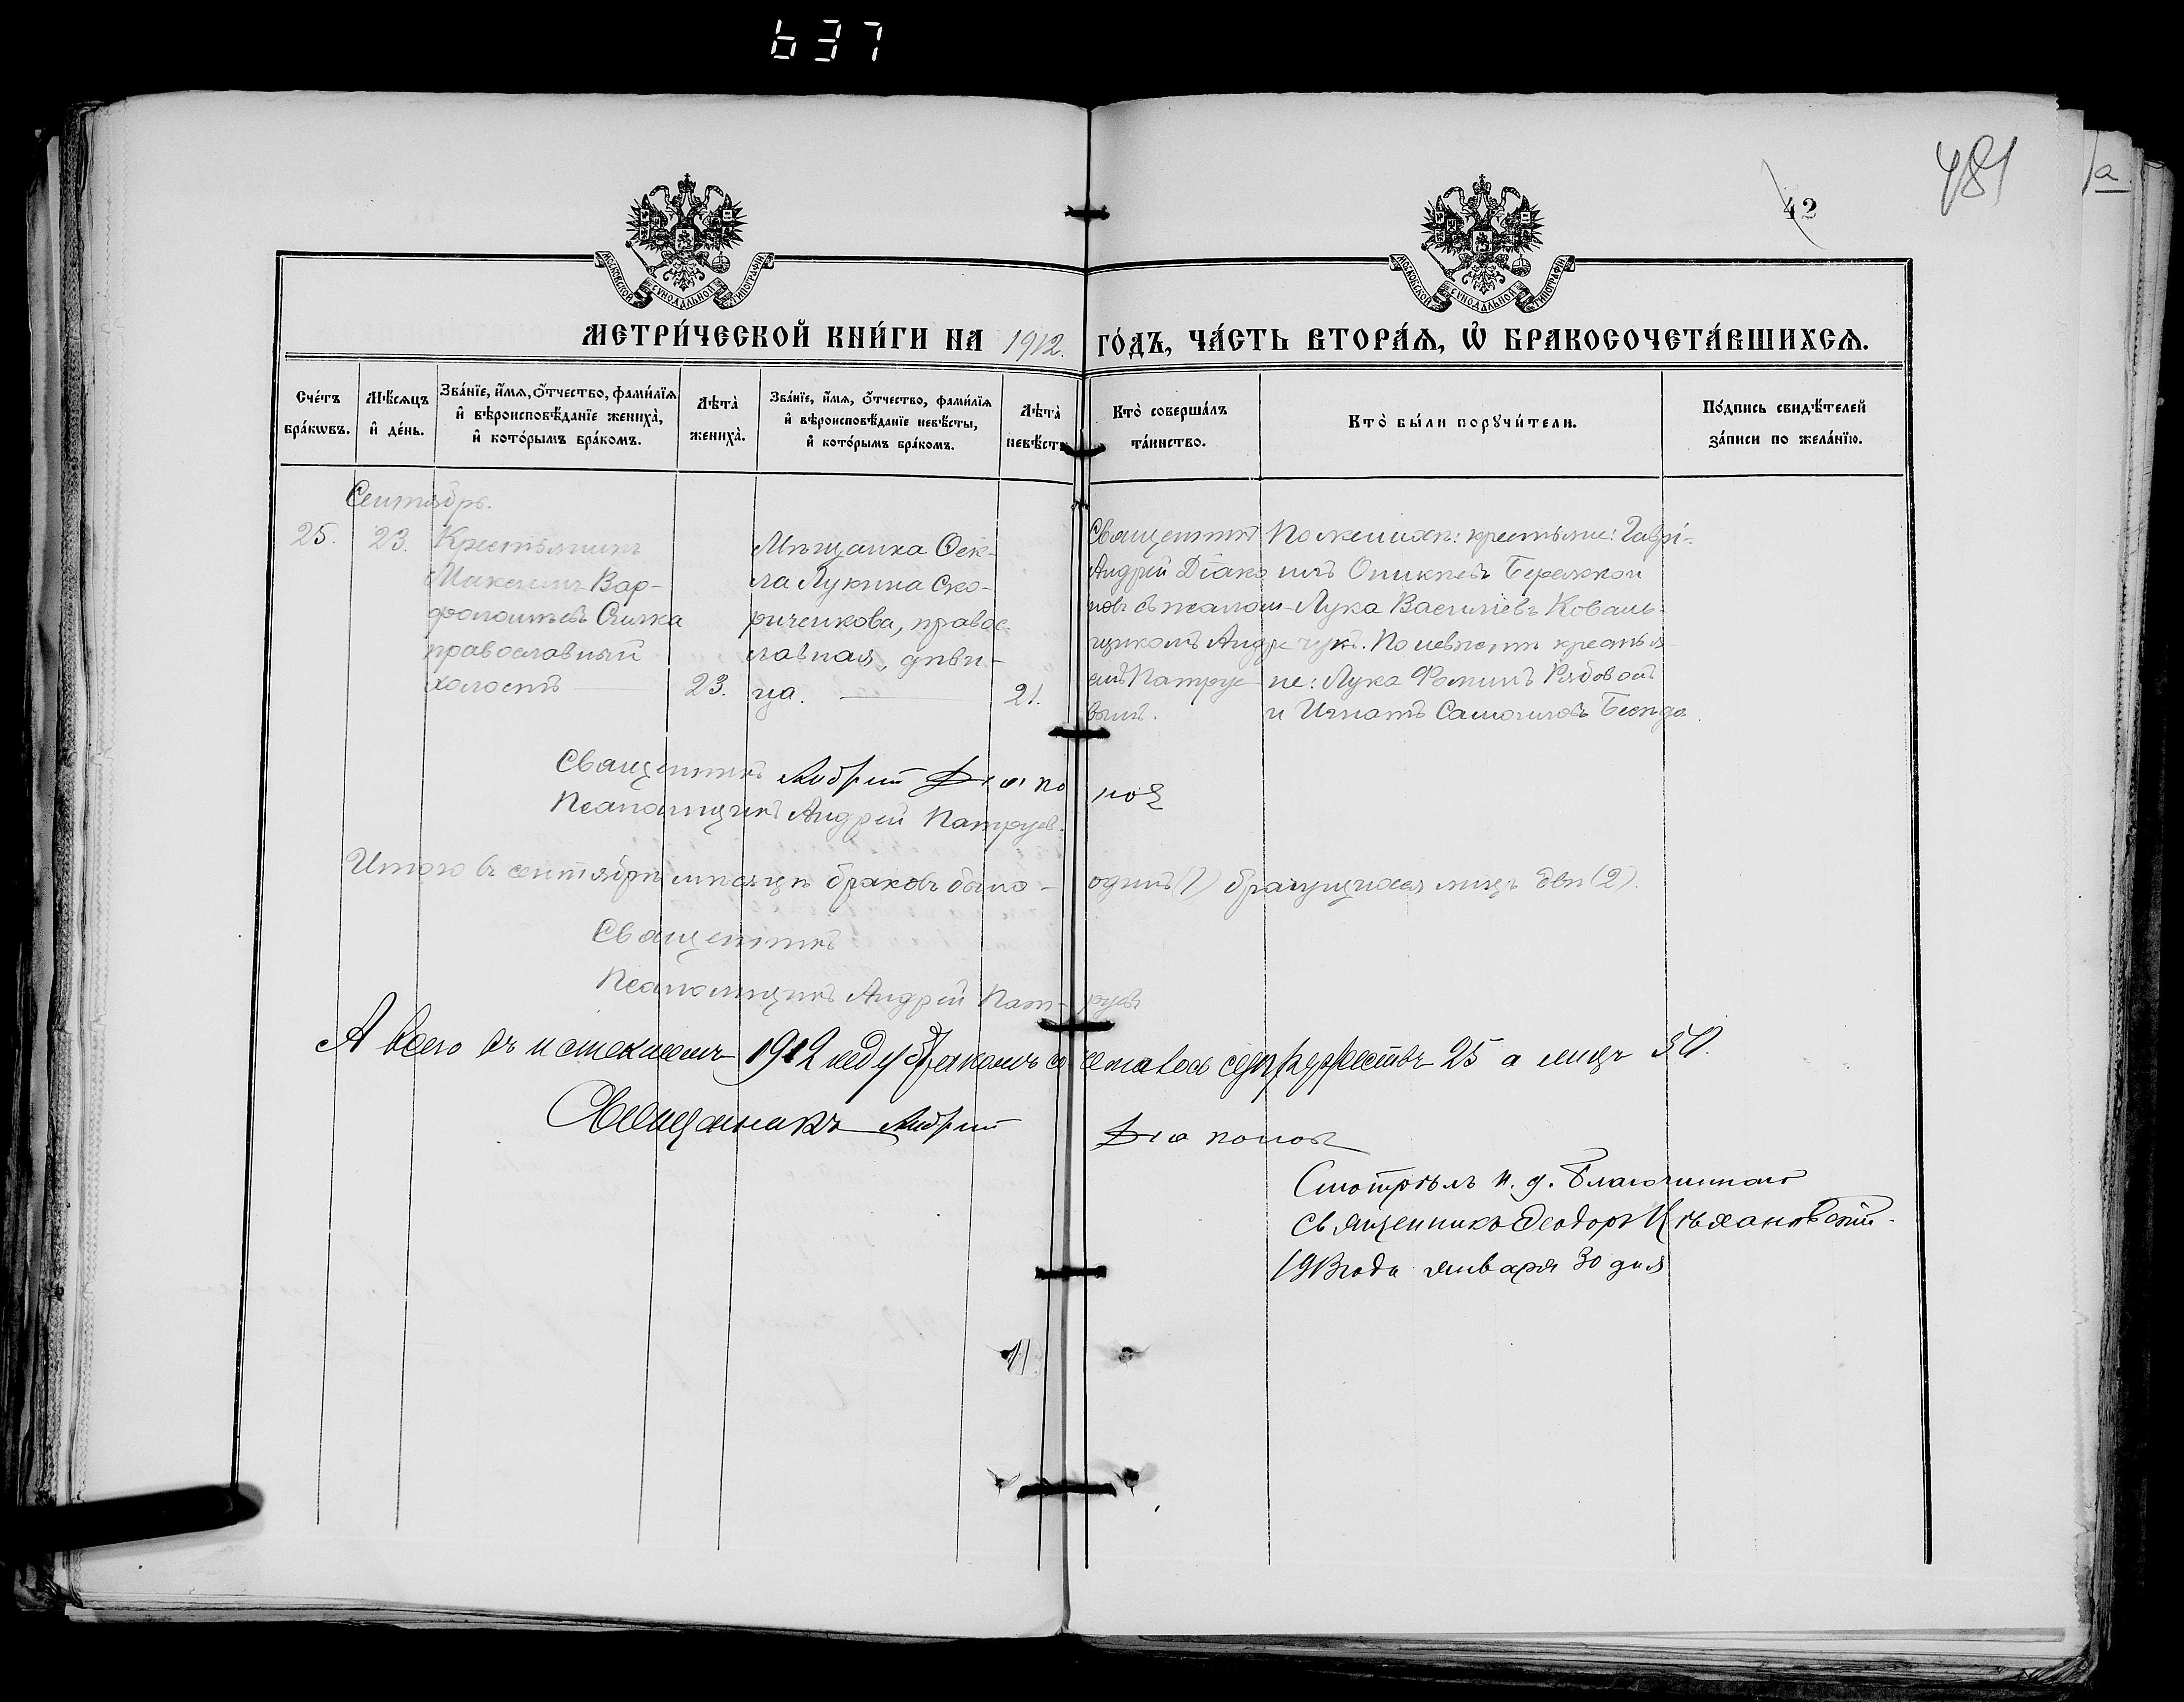 637
481
42
а
МОСКОВСКОЙ СѴНОДАЛЬНОЙ ТИПОГРАФІИ
МОСКОВСКОЙ СѴНОДАЛЬНОЙ ТИПОГРАФІИ
МЕТРИ́ЧЕСКОЙ КНИ́ГИ НА 1912. ГО́ДЪ, ЧА́СТЬ ВТОРА́Ѧ, Ѡ҆ БРАКОСОЧЕТА́ВШИХСѦ.
Сче́тъ бра́кѡвъ.
Мѣ́сѧцъ и҆ де́нь.
Зва́нїе, и҆́мѧ, ѻ҆́тчество, фами́лїѧ и҆ вѣроисповѣ́данїе жениха̀, и҆ кото́рымъ бра́комъ.
Лѣта̀ жениха̀.
Зва́нїе, и҆́мѧ, ѻ҆́тчество, фами́лїѧ и҆ вѣроисповѣ́данїе невѣ́сты, и҆ кото́рымъ бра́комъ.
Лѣта̀ невѣ́сты
Кто̀ соверша́лъ та́инство.
Кто̀ бы́ли порꙋчи́тели.
По́дпись свидѣ́телей за́писи по жела́нїю.
Сентябрь.
25.
23.
Крестьянинъ
Максимъ Вар-
фоломѣевъ
православный
холостъ
23.
Мѣщанка Ѳек-
ла Лукина Ско-
риченкова, правос-
лавная, дѣви-
ца.
21.
Священникъ
Андрей Діако
новъ съ псалом-
щикомъ Андре
емъ Патруе
вымъ.
По женихѣ: крестьяне: Гаврі-
илъ Бережной
Лука Васильевъ Коваль-
чукъ. По невѣстѣ крестья
не: Лука Ѳоминъ Рябовой
и Игнатъ Самойловъ
Священникъ Андрей Діаконовъ
Псаломщикъ Андрей Патруевъ.
Итого въ сентябрѣ мѣсяцѣ браковъ было - одинъ (1) брачущихся лицъ двѣ (2).
Священникъ
Псаломщикъ Андрей Пат-руевъ
А всего въ истекшемъ 1912 году бракомъ сочеталось супружествъ 25 а лицъ 50.
Священникъ Андрей Діаконовъ
Смотрѣлъ и. д. Благочиннаго
священникъ Ѳеодоръ
1913 года января 30 дня